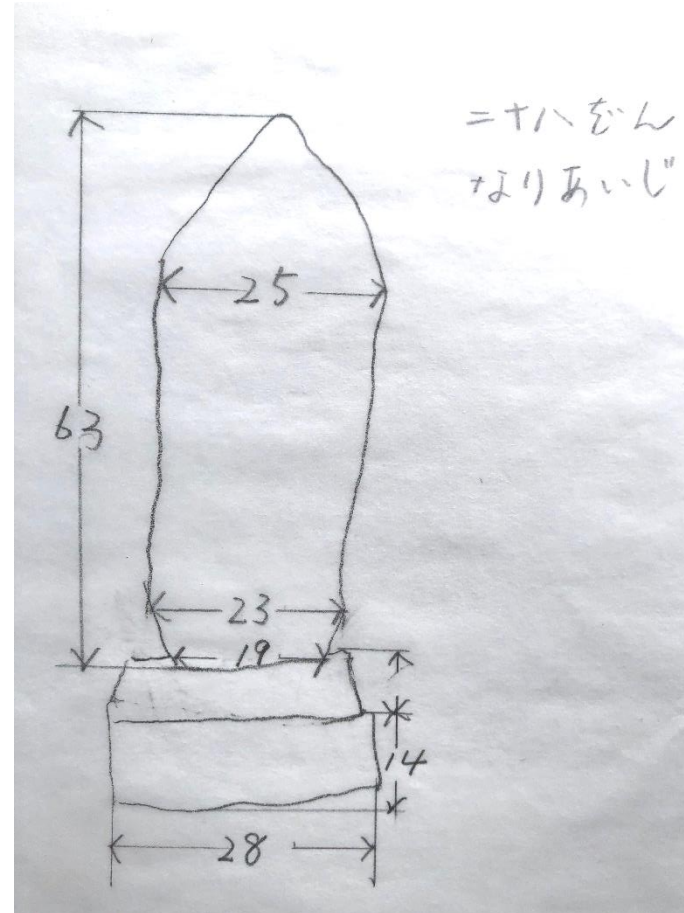 二十八ばん
なりあいじ
25
63
23
19
14
28